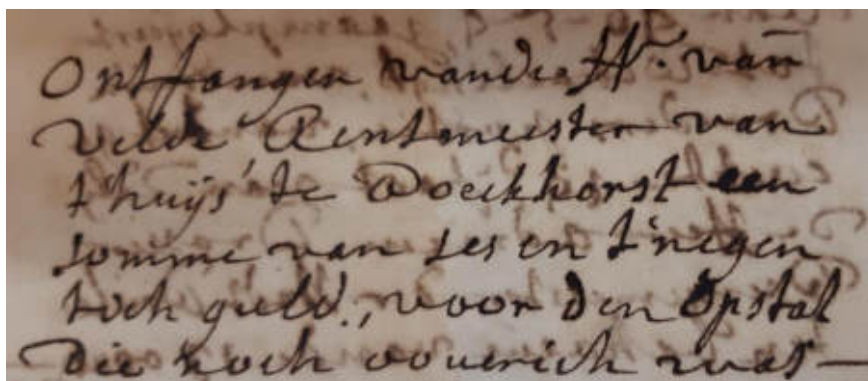 Ontfangen vande Hr. van
Velde Rentmeester van
t'huijs te Doeckhorst een
somme van ses en t'negen
toch guld., voor den opstal
die noch ooverich was